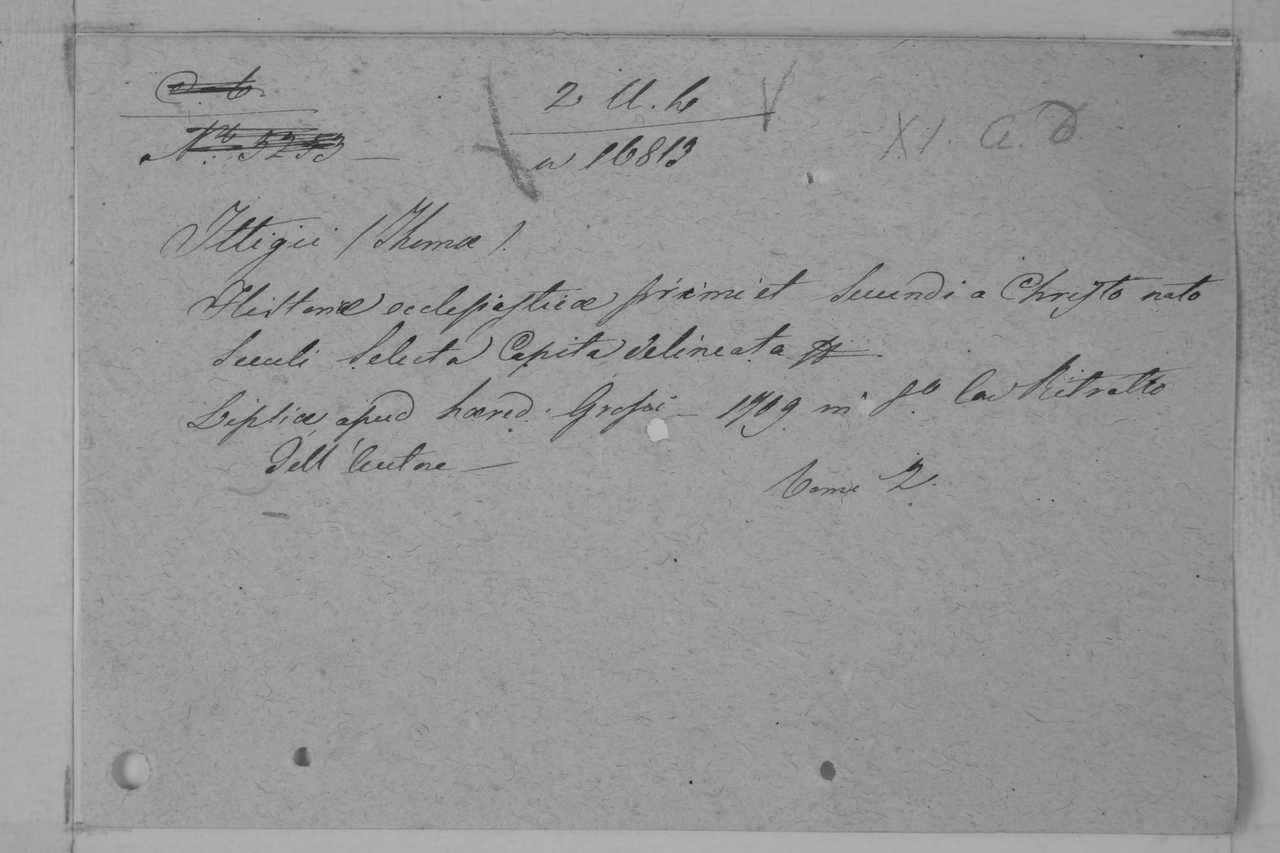 2 U. h
n 16813
XI. a. D
Ittigii (Thomæ).
Historiæ ecclesiasticæ primi et Secundi a Christo nato
Seculi Selecta Capita delineata
Lipsiæ apud hæred. Grossii – 1709 in 8º Col Ritratto
dell'Autore –
Tome 2.